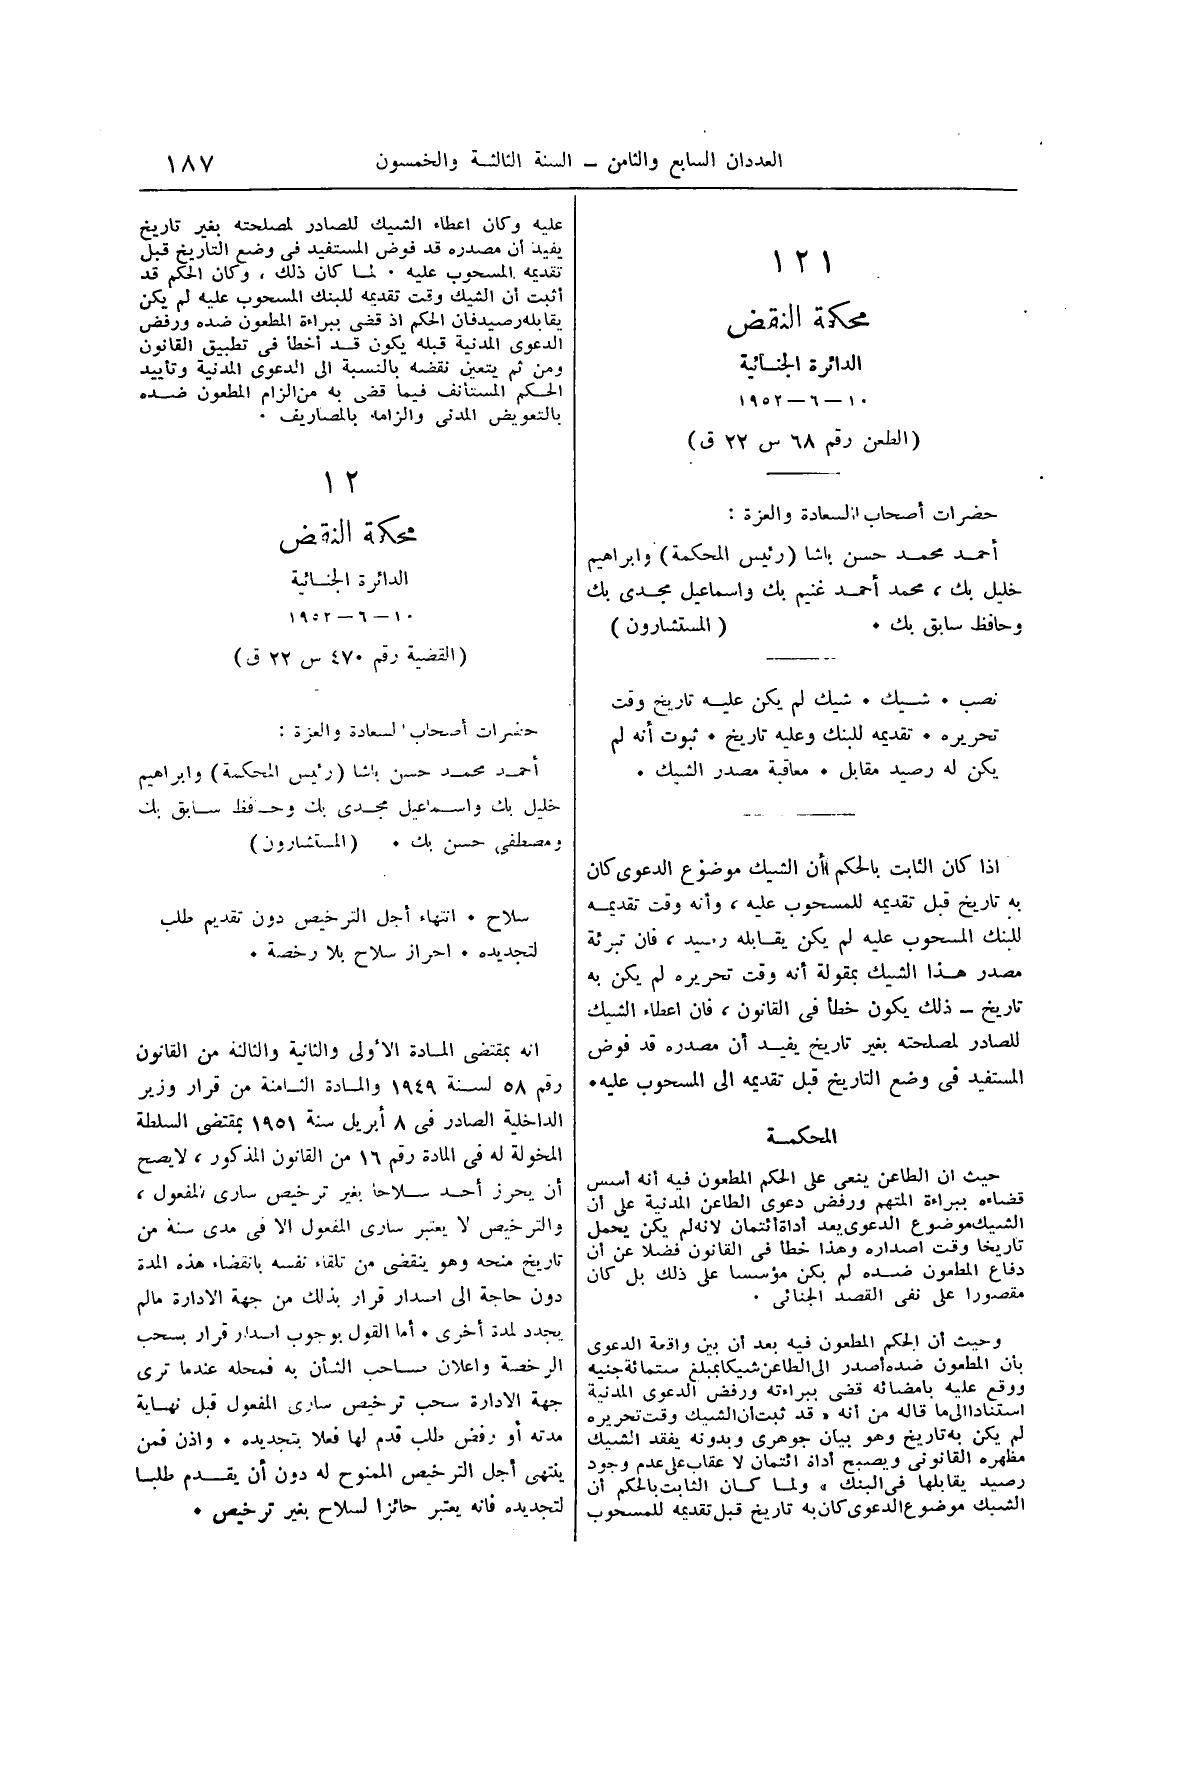 العددان السابع والثامن — السنة الثالثة والخمسون
١٨٧
١٢١
محكمة النقض
الدائرة الجنائية
١٠ — ٦ — ١٩٥٢
(الطعن رقم ٦٨ س ٢٢ ق)
حضرات أصحاب السعادة والعزة :
أحمد محمد حسن باشا (رئيس المحكمة) وابراهيم
خليل بك ، محمد أحمد غنيم بك واسماعيل مجدى بك
وحافظ سابق بك . (المستشارون)
نصب . شيك . شيك لم يكن عليه تاريخ وقت
تحريره . تقديمه للبنك وعليه تاريخ . ثبوت أنه لم
يكن له رصيد مقابل . معاقبة مصدر الشيك .
اذا كان الثابت بالحكم أن الشيك موضوع الدعوى كان
به تاريخ قبل تقديمه للمسحوب عليه ، وأنه وقت تقديمه
للبنك المسحوب عليه لم يكن يقابله رصيد ، فان تبرئة
مصدر هذا الشيك بمقولة أنه وقت تحريره لم يكن به
تاريخ — ذلك يكون خطأ فى القانون ، فان اعطاء الشيك
للصادر لمصلحته بغير تاريخ يفيد أن مصدره قد فوض
المستفيد فى وضع التاريخ قبل تقديمه الى المسحوب عليه .
المحكمة
حيث ان الطاعن ينعى على الحكم المطعون فيه أنه أسس
قضاءه ببراءة المتهم ورفض دعوى الطاعن المدنية على أن
الشيك موضوع الدعوى يعد أداة أئتمان لانه لم يكن يحمل
تاريخا وقت اصداره وهذا خطأ فى القانون فضلا عن أن
دفاع المطعون ضده لم يكن مؤسسا على ذلك بل كان
مقصورا على نفى القصد الجنائى .
وحيث أن الحكم المطعون فيه بعد أن بين واقعة الدعوى
بأن المطعون ضده أصدر الى الطاعن شيكا بمبلغ ستمائة جنيه
ووقع عليه بامضائه قضى ببراءته ورفض الدعوى المدنية
استنادا الى ما قاله من أنه « قد ثبت أن الشيك وقت تحريره
لم يكن به تاريخ وهو بيان جوهرى وبدونه يفقد الشيك
مظهره القانونى ويصبح أداة ائتمان لا عقاب على عدم وجود
رصيد يقابلها فى البنك » ولما كان الثابت بالحكم أن
الشيك موضوع الدعوى كان به تاريخ قبل تقديمه للمسحوب
عليه وكان اعطاء الشيك للصادر لمصلحته بغير تاريخ
يفيد أن مصدره قد فوض المستفيد فى وضع التاريخ قبل
تقديمه المسحوب عليه . لما كان ذلك ، وكان الحكم قد
أثبت أن الشيك وقت تقديمه للبنك المسحوب عليه لم يكن
يقابله رصيد فان الحكم اذ قضى ببراءة المطعون ضده ورفض
الدعوى المدنية قبله يكون قد أخطأ فى تطبيق القانون
ومن ثم يتعين نقضه بالنسبة الى الدعوى المدنية وتأييد
الحكم المستأنف فيما قضى به من الزام المطعون ضده
بالتعويض المدنى والزامه بالمصاريف .
١٢
محكمة النقض
الدائرة الجنائية
١٠ — ٦ — ١٩٥٢
(القضية رقم ٤٧٠ س ٢٢ ق)
حضرات أصحاب السعادة والعزة :
أحمد محمد حسن باشا (رئيس المحكمة) وابراهيم
خليل بك واسماعيل مجدى بك وحافظ سابق بك
ومصطفى حسن بك . (المستشارون)
سلاح . انتهاء أجل الترخيص دون تقديم طلب
لتجديده . احراز سلاح بلا رخصة .
انه بمقتضى المادة الأولى والثانية والثالثة من القانون
رقم ٥٨ لسنة ١٩٤٩ والمادة الثامنة من قرار وزير
الداخلية الصادر فى ٨ أبريل سنة ١٩٥١ بمقتضى السلطة
المخولة له فى المادة رقم ١٦ من القانون المذكور ، لا يصح
أن يحرز أحد سلاحا بغير ترخيص سارى المفعول ،
والترخيص لا يعتبر سارى المفعول الا فى مدى سنة من
تاريخ منحه وهو ينقضى من تلقاء نفسه بانقضاء هذه المدة
دون حاجة الى اصدار قرار بذلك من جهة الادارة مالم
يجدد لمدة أخرى . أما القول بوجوب اصدار قرار بسحب
الرخصة واعلان صاحب الشأن به فمحله عندما ترى
جهة الادارة سحب ترخيص سارى المفعول قبل نهاية
مدته أو رفض طلب قدم لها فعلا بتجديده . واذن فمن
ينتهى أجل الترخيص الممنوح له دون أن يقدم طلبا
لتجديده فانه يعتبر حائزا لسلاح بغير ترخيص .